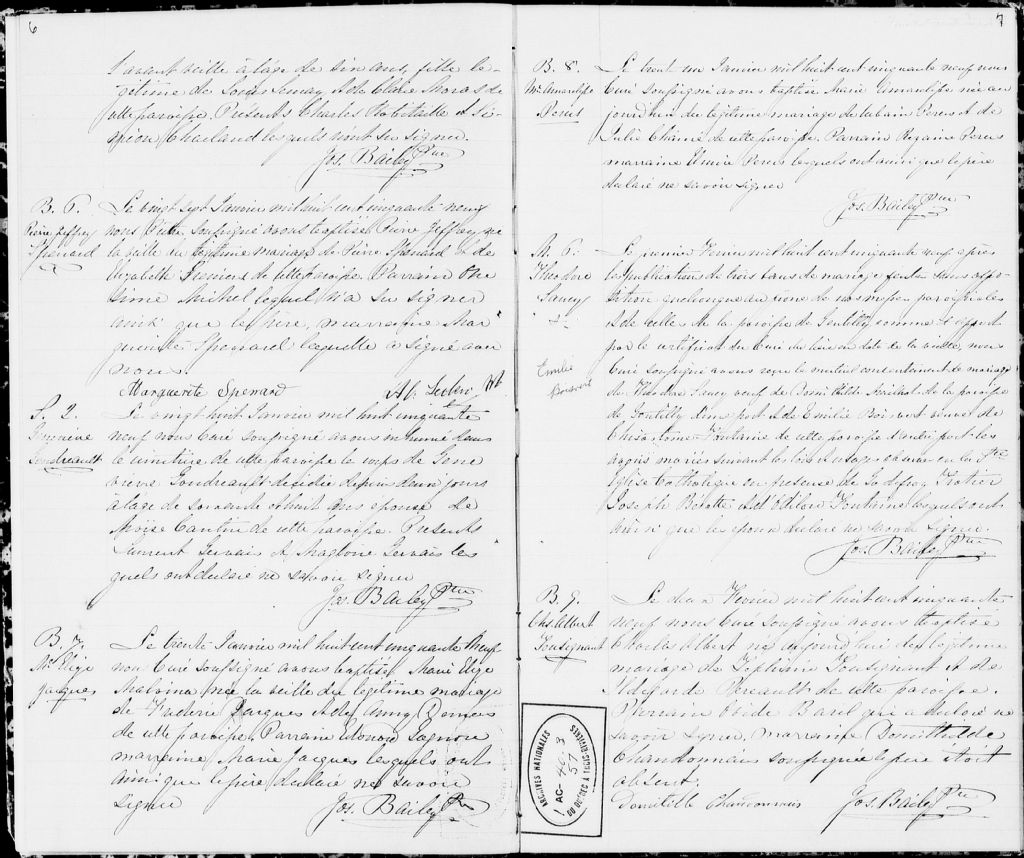 6
l'avant veille à l'age de six ans, fille le-
gitime de Louis Lemay et de Claire Moras de
cette paroisse. Présents Charles Robitaille et Si-
méon Charland lesquels n'ont su signer.
Jos. Bailey Ptre
B. 6.
Pierre Jeffrey
Spenard
Le vingt sept Janvier mil huit cent cinquante neuf
nous Prêtre soussigné avons baptisé Pierre Jeffrey né
la veille du légitime mariage de Pierre Spenard et de
Elizabeth de cette paroisse. Parrain One
sime Michel lequel n'a su signer
ainsi que le père, marraine Mar
guerite Spenard laquelle a signé avec
nous.
Marguerite Spenard
S. 2.
Genevieve
Gondreault
Le vingt huit Janvier mil huit cinquante
neuf nous Curé soussigné avons inhumé dans
le cimitière de cette paroisse le corps de Gene
vieve Gondreault décédée depuis deux jours
à l'age de soixante et huit ans epouse de
Moïse Cantin de cette paroisse. Présents
Laurent Gervais et Magloire Gervais les
quels ont déclaré ne savoir signer
Jos. Bailey Ptre
B. 7.
Me Elize
Jacques
Le trente Janvier mil huit cent cinquante neuf
nous Curé soussigné avons baptisé Marie Elize
Malvina née la veille du légitime mariage
de Jacques et de Demers
de cette paroisse. Parrain Gagnon
marraine Marie Jacques lesquels ont
ainsi que le père déclaré ne savoir
signer
Jos. Bailey Ptre
7
B. 8.
Me
Perus
Le trent un Janvier mil huit cent cinquante neuf nous
Curé soussigné avons baptisé Marie née au
jourd'hui du légitime mariage de Urbain et de
Julie Chainé de cette paroisse. Parrain
marraine lesquels ont ainsi que le père
declaré ne savoir signer
Jos. Bailey Ptre
M. 6.
Theodore
Lancy
&
Emilie
Boisvert
Le premier Fevrier mil huit cent cinquante neuf après
la publication de trois bans de mariage faites sans oppo
sition quelconque au prône de nos messes paroissiales
et de celles de la paroisse de Gentilly comme il appert
par le certificat du Curé du lieu en date de la veille, nous
Curé soussigné avons reçu le mutuel consentement de mariage
de Theodore Lancy veuf de de la paroisse
de Gentilly d'une part et de Emilie Boisvert veuve de
Chrisostome Fontaine de cette paroisse d'autre part les
avons mariés suivant les lois et usages observés en la Ste
Eglise Catholique en présence de Godfroy Trotier
Joseph Belotte et d'Odilon Fontaine lesquels ont
ainsi que les epoux déclaré ne savoir signer.
Jos. Bailey Ptre
B. 9.
Chs. Albert
Tousignant
Le deux Fevrier mil huit cent cinquante
neuf nous Curé soussigné avons baptisé
Charles Albert né aujourd'hui du légitime
mariage de Zéphirin Tousignant et de
Ildegarde Perreault de cette paroisse.
Parrain Ovide Baril qui a déclaré ne
savoir signer, marraine Domithilde
Chandonnais soussignée le père étoit
absent.
Domitille Chandonnais
Jos. Bailey Ptre
ARCHIVES NATIONALES
1 AC-40-3
57
DU QUÉBEC A TROIS-RIVIERES